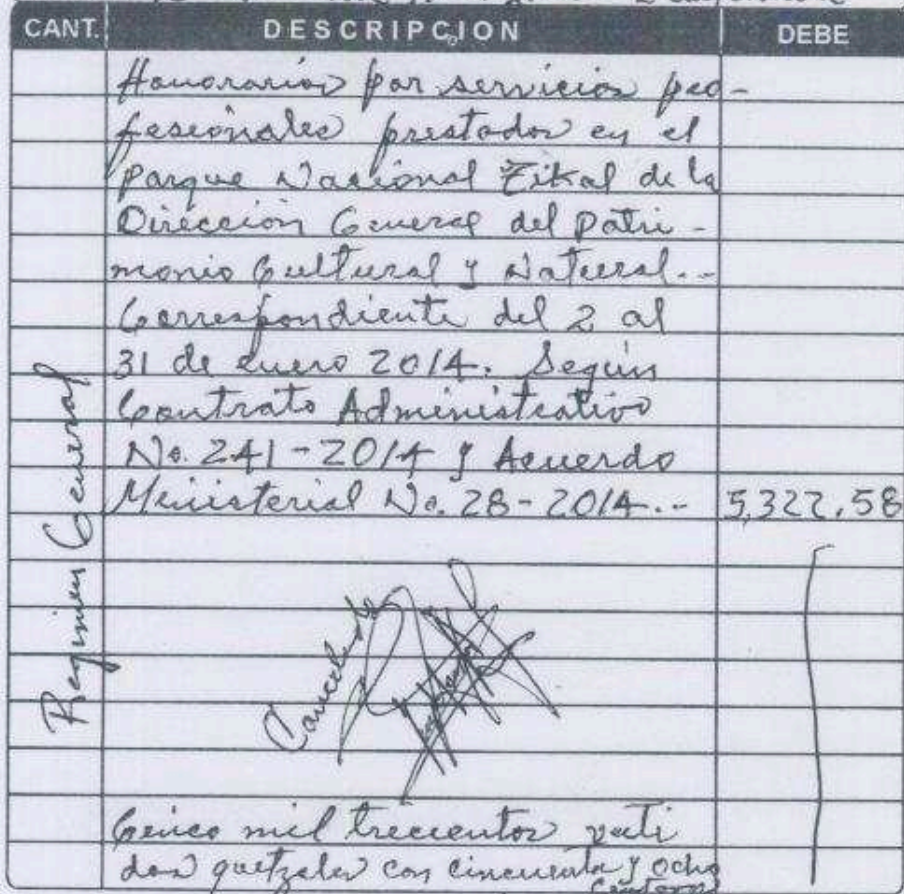 CANT. DESCRIPCION DEBE
Honorarios por servicios pro-
fesionales prestados en el
Parque Nacional Tikal de la
Dirección General del Patri-
monio Cultural y Natural.-
Correspondiente del 2 al
31 de enero 2014. Según
Contrato Administrativo
No. 241-2014 y Acuerdo
Ministerial No. 28-2014.- 5,322.58
Regimen General
Cancelado
Cinco mil trecientos veiti
dos quetzales con cincuenta y ocho
centavos